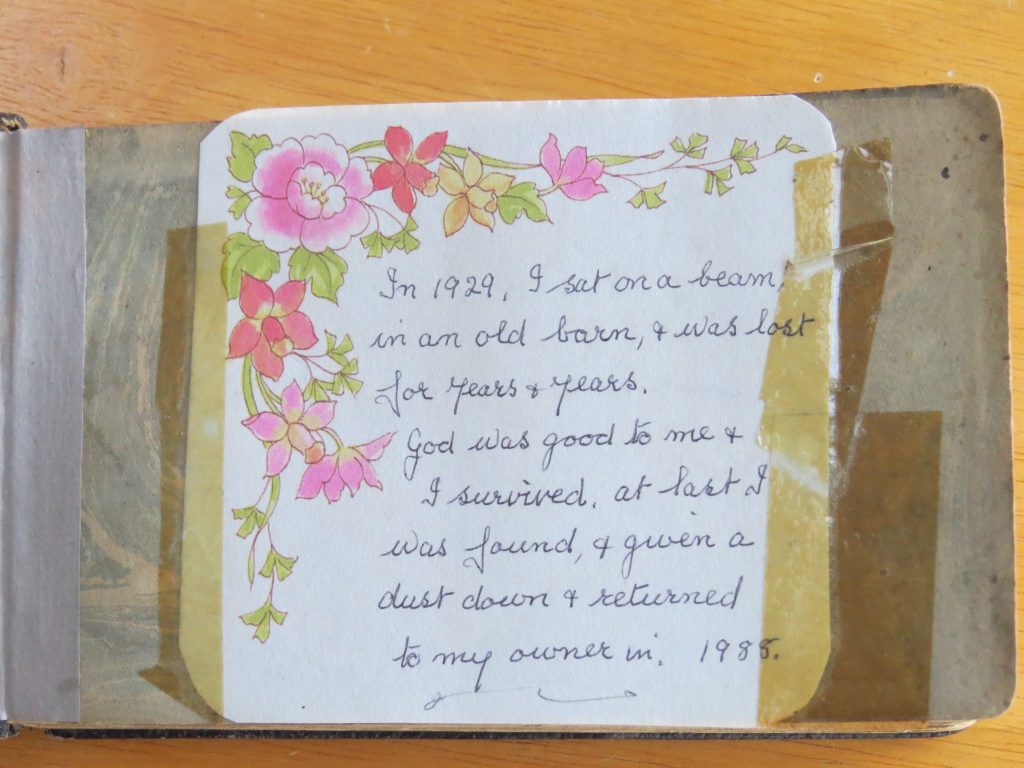 In 1929, I sat on a beam,
in an old barn, & was lost
for years & years.
God was good to me &
I survived. at last I
was found, & given a
dust down & returned
to my owner in. 1988.